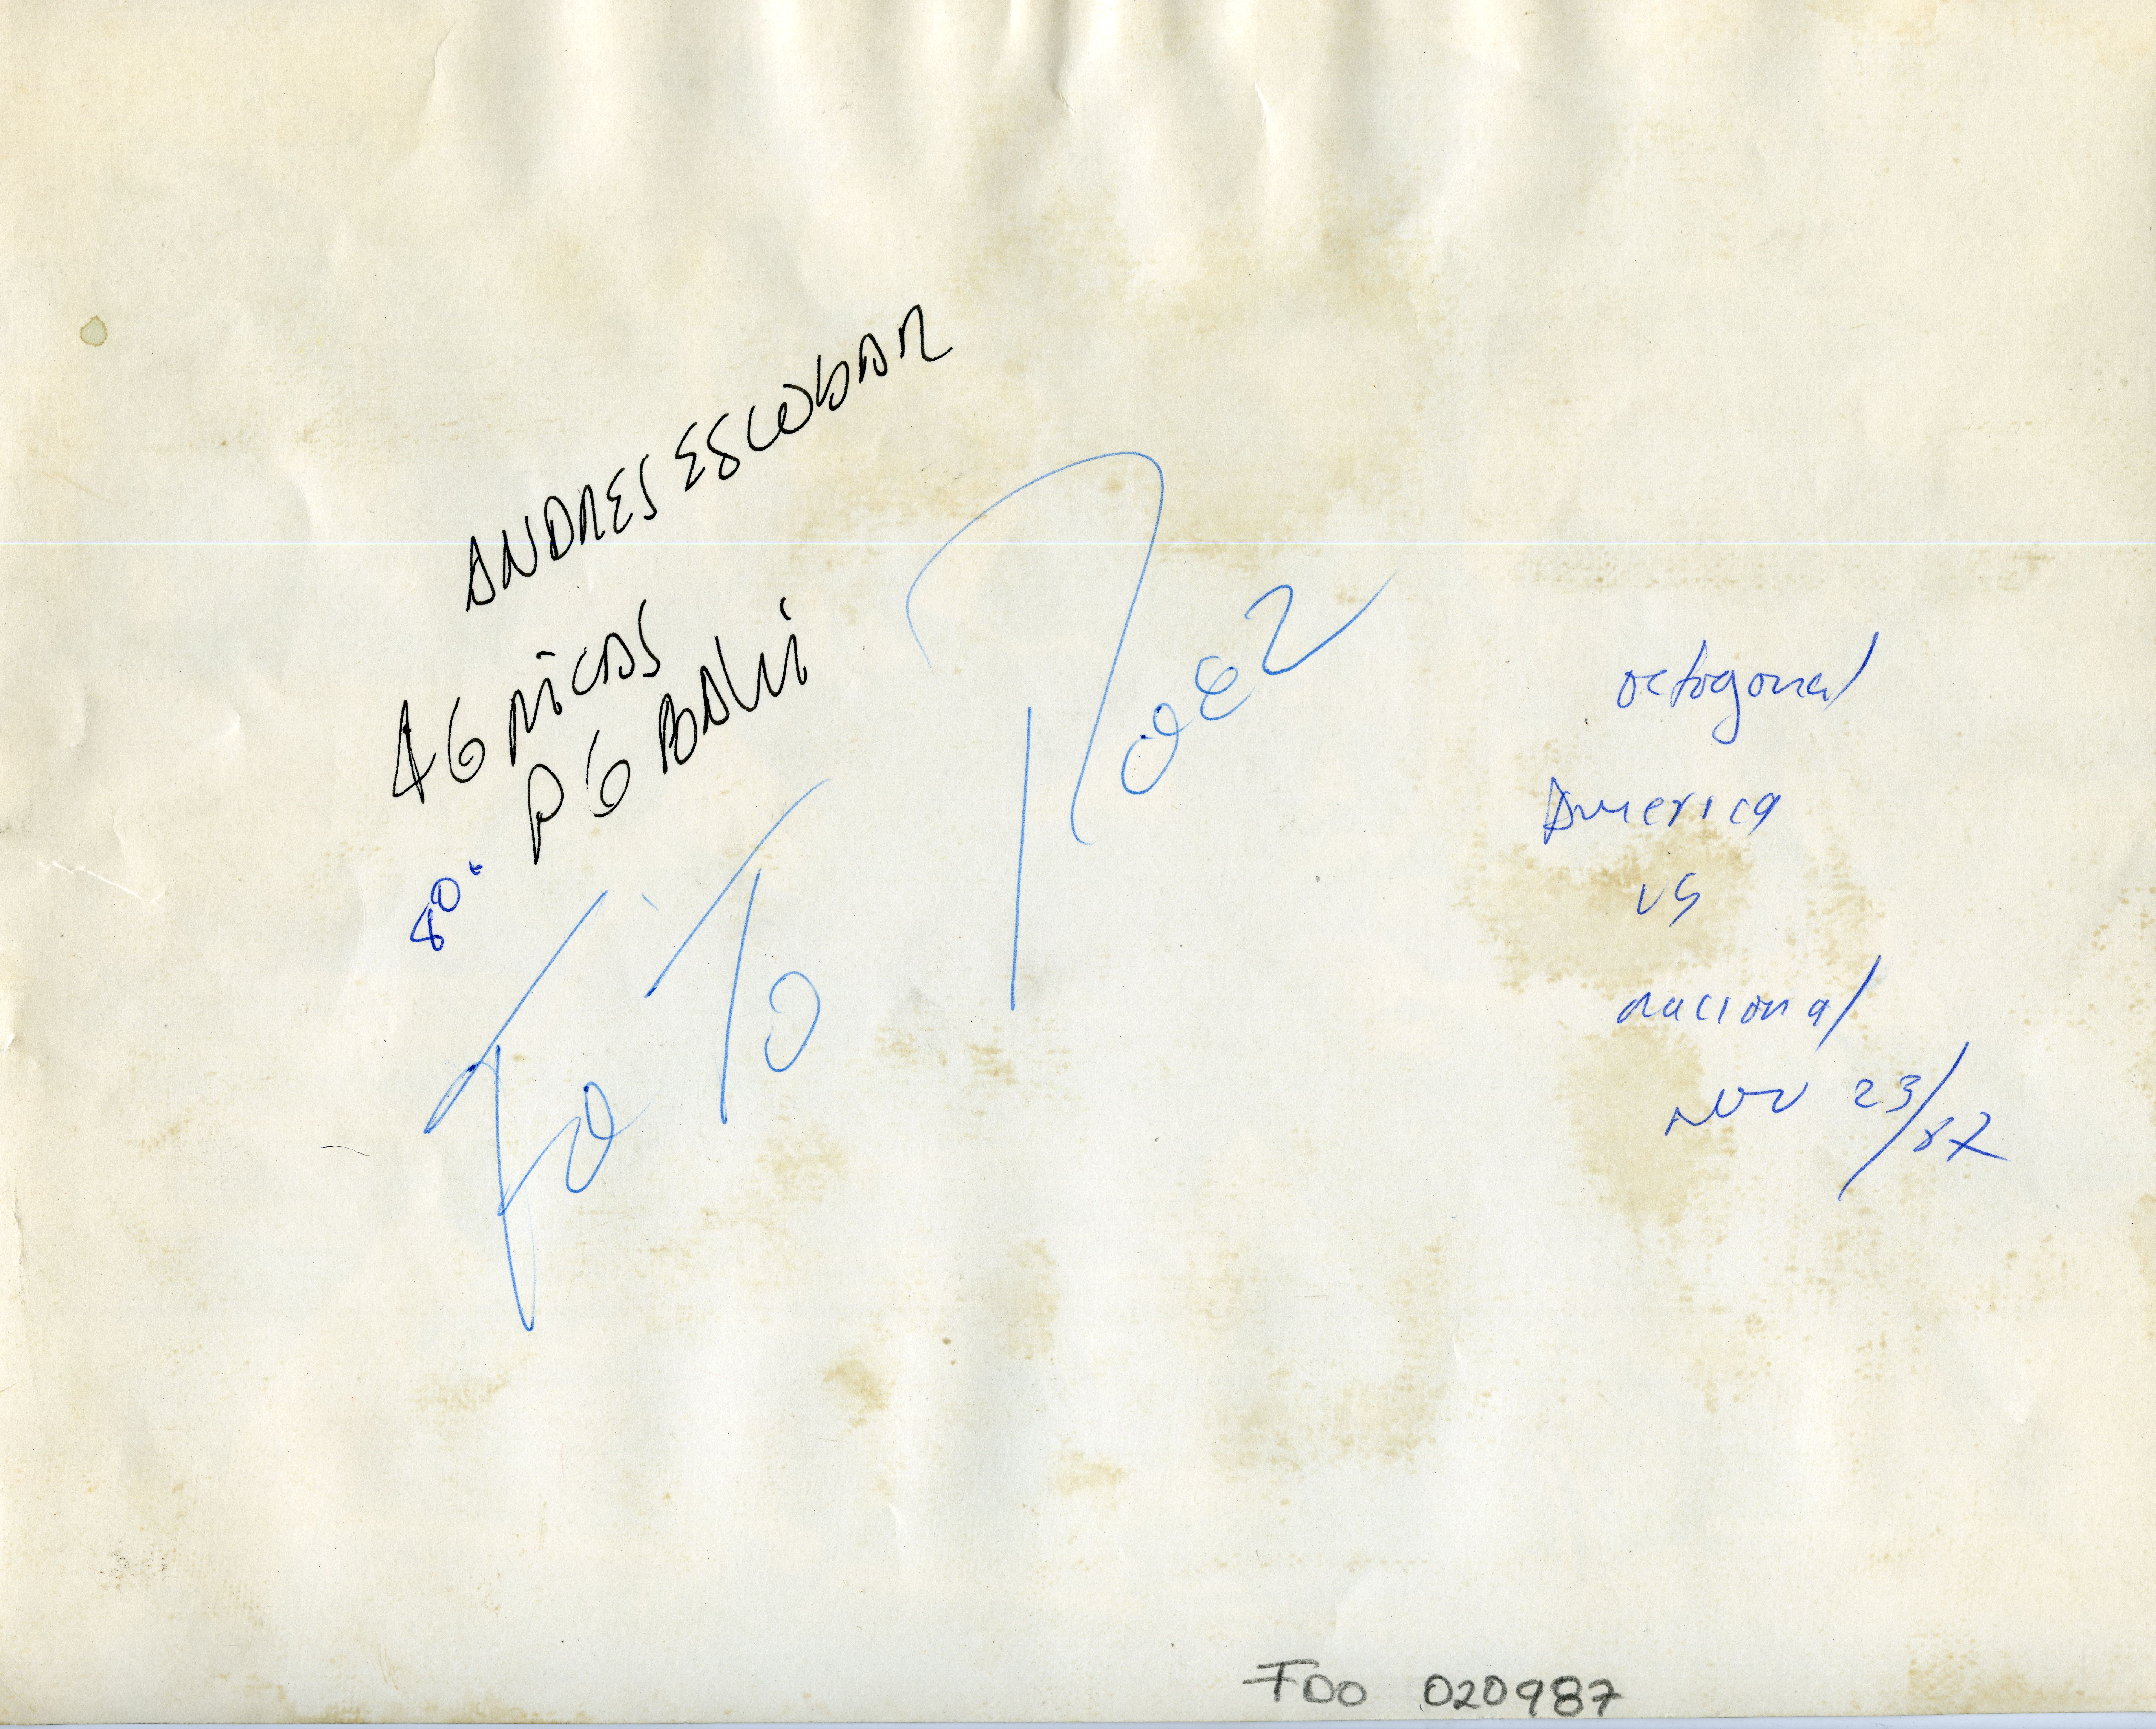 ANDRES ESCOBAR
46 PICAS
P6 BALLI
80%
FOTO
octogonal
America
vs
nacional
Nov 23/87
FDO 020987